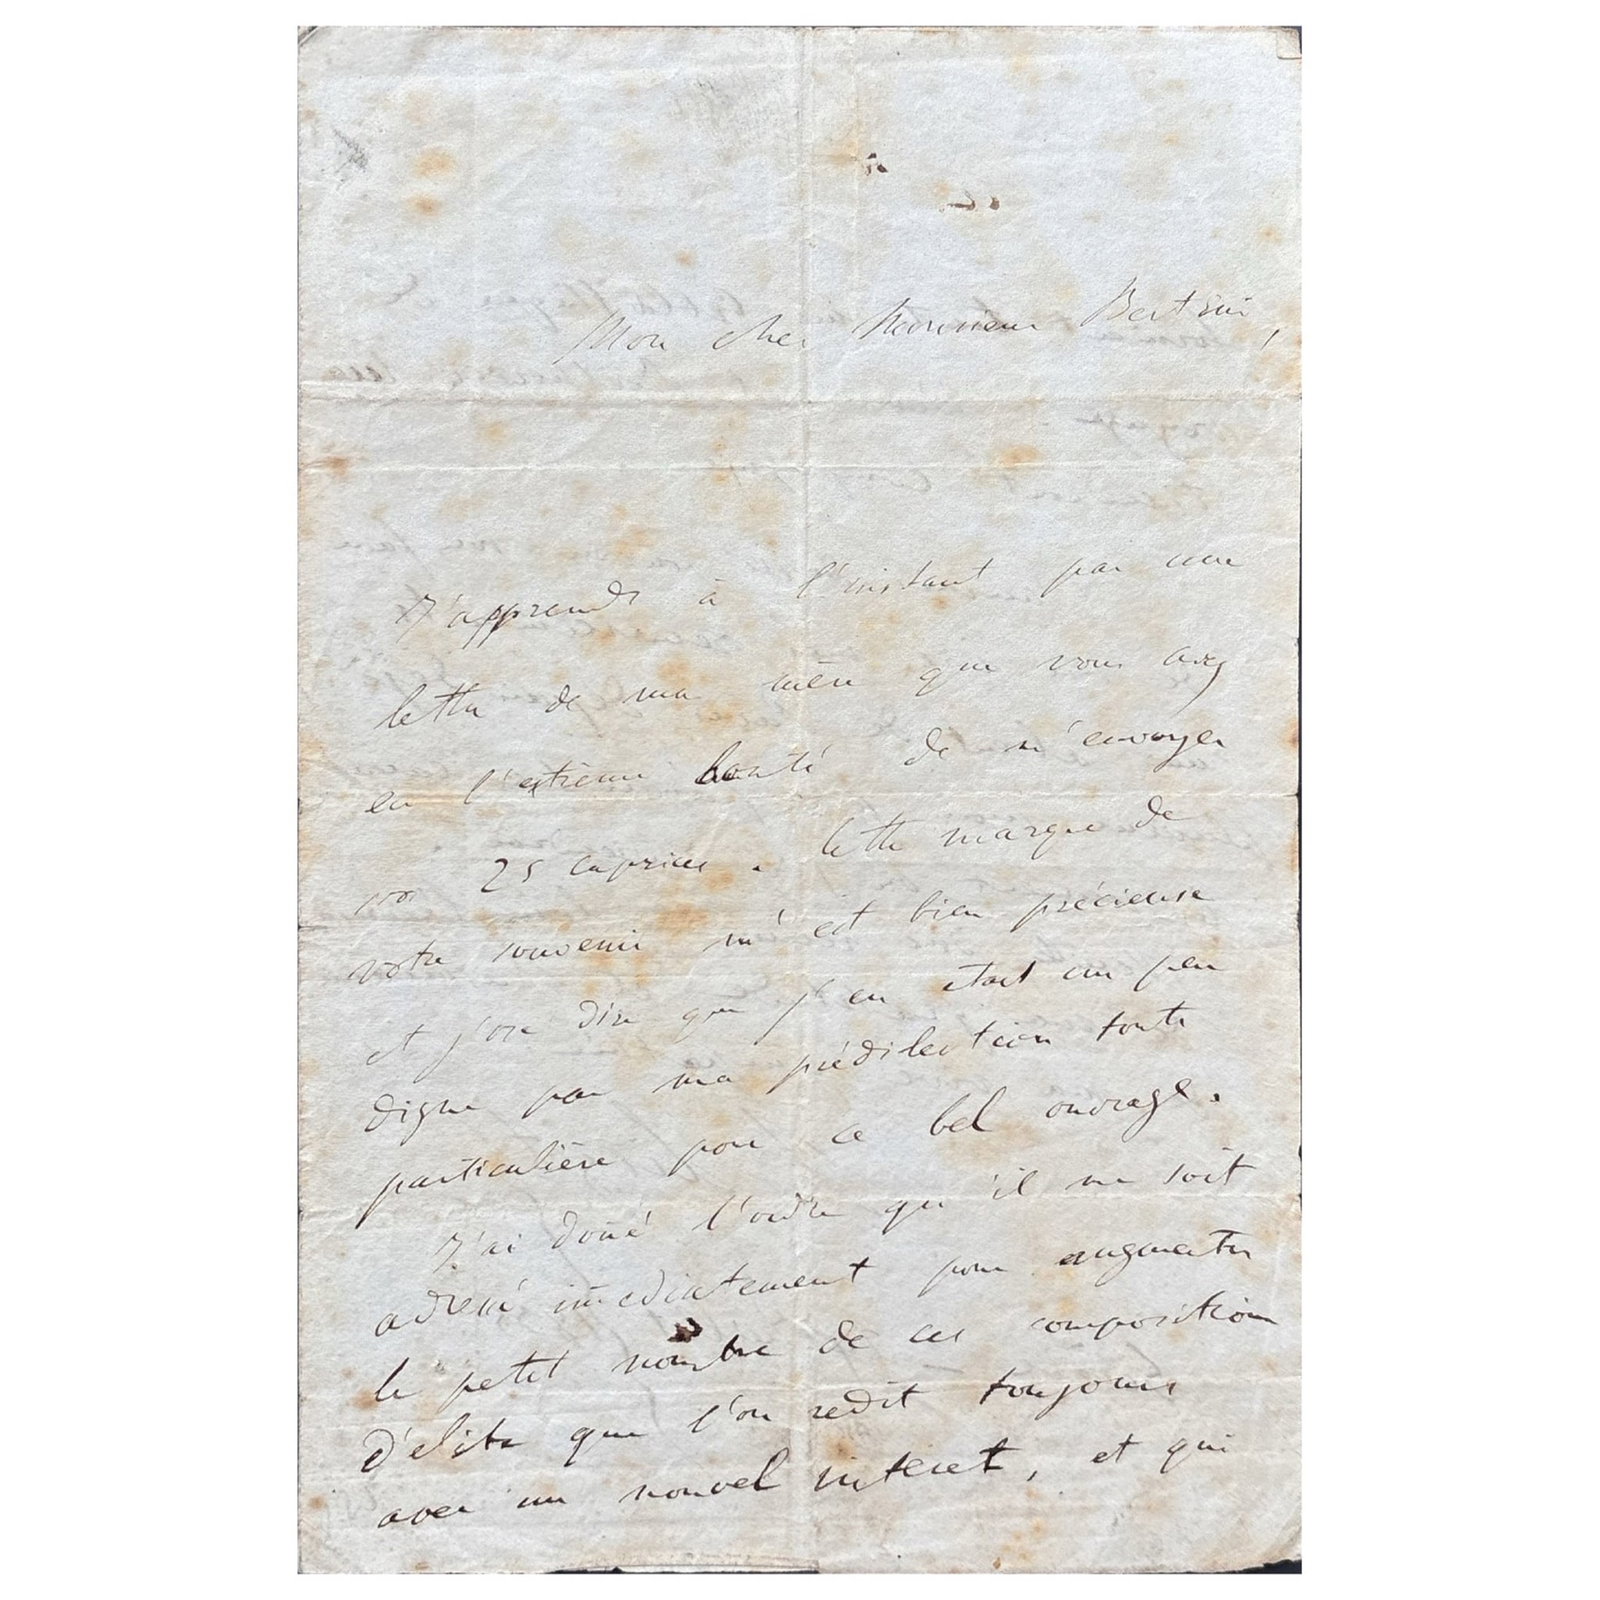 Mon cher Monsieur Bertini,
J'apprends à l'instant par une
lettre de ma mère que vous avez
eu l'extrême bonté de m'envoyer
vos 25 caprices. Cette marque de
votre souvenir m'est bien précieuse
et j'ose dire que j'en etais un peu
digne par ma prédilection toute
particulière pour ce bel ouvrage.
J'ai doñé l'ordre qu'il me soit
adressé im̃ediatement pour augmenter
le petit nom̃bre de ces compositions
d'elite que l'on redit toujours
avec un nouvel interet, et qui